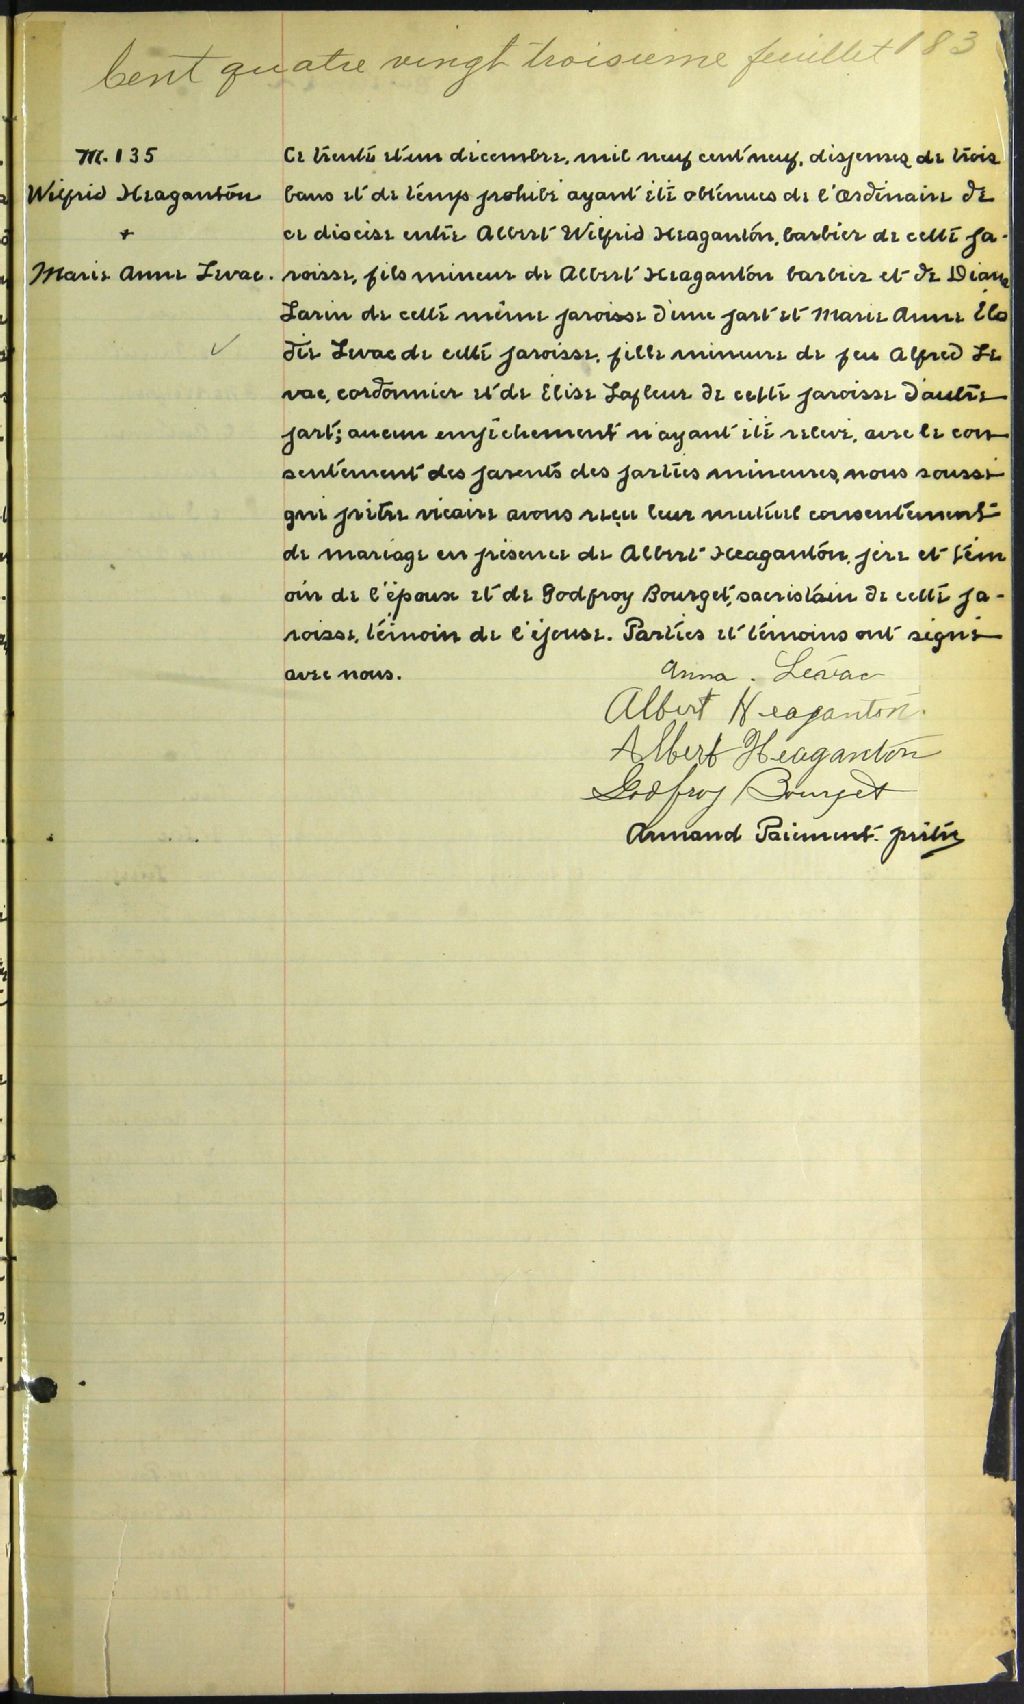 Cent quatre vingt troisième feuillet 183
M. 135
Wilfrid Heaganton
+
Marie Anne Levac.
Ce trente et un décembre, mil neuf cent neuf, dispenses de trois
bans et de temps prohibé ayant été obtenues de l'Ordinaire de
ce diocèse entre Albert Wilfrid Heaganton, barbier de cette pa-
roisse, fils mineur de Albert Heaganton barbier et de Diana
Larin de cette même paroisse d'une part et Marie Anne Élo
die Levac de cette paroisse, fille mineure de feu Alfred Le
vac, cordonnier et de Élise Lafleur de cette paroisse d'autre
part; aucun empêchement n'ayant été relevé, avec le con
sentement des parents des parties mineures, nous soussi
gné prêtre vicaire avons reçu leur mutuel consentement
de mariage en présence de Albert Heaganton, père et tém
oin de l'époux et de Godfroy Bourget, sacristain de cette pa-
roisse, témoin de l'épouse. Parties et témoins ont signé
avec nous.
Anna. Levac
Albert Heaganton.
Albert Heaganton
Godfroy Bourget
Armand Paiement. prêtre